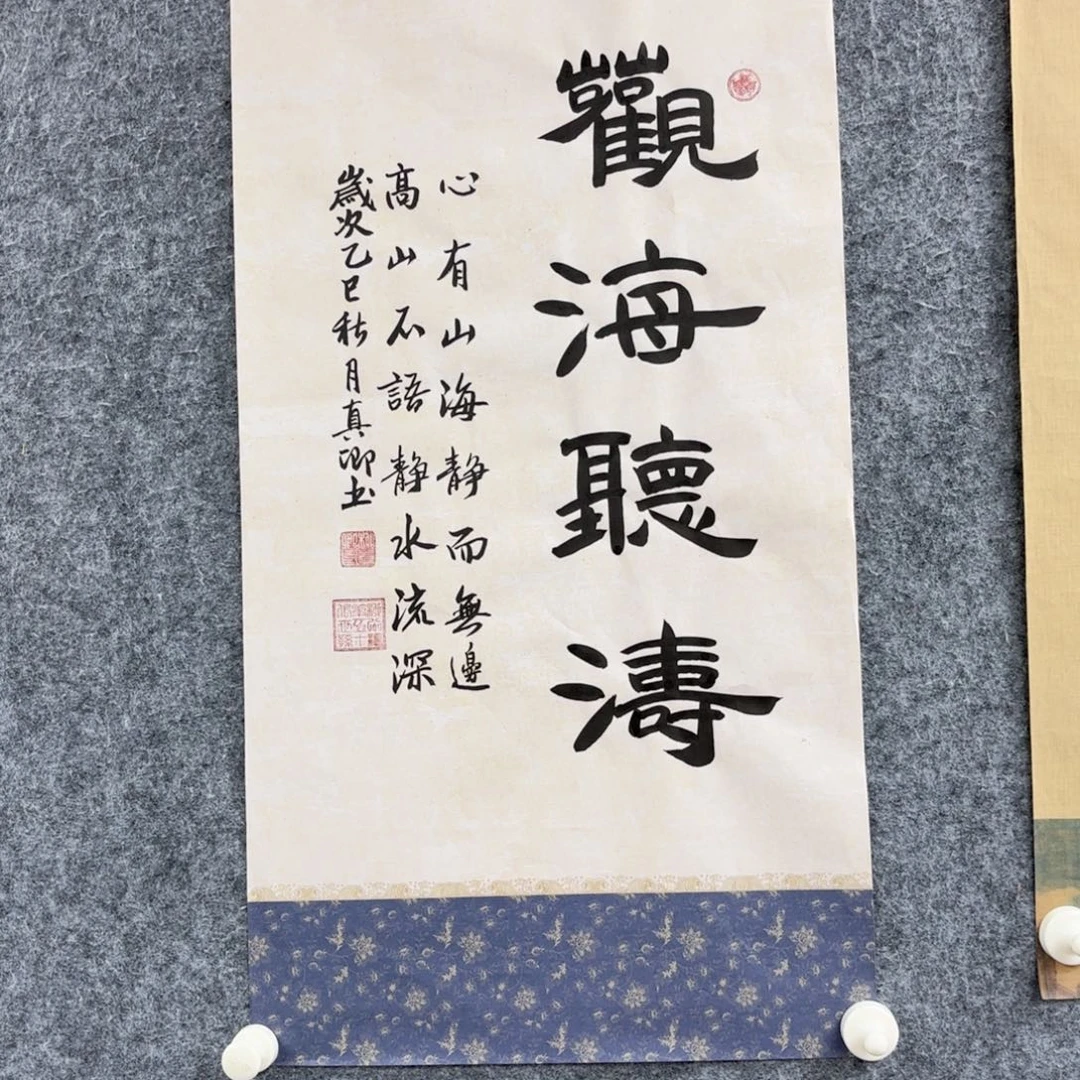 觀海聽濤
心有山海静而無邊
高山不語静水流深
歲次乙巳秋月真卿书